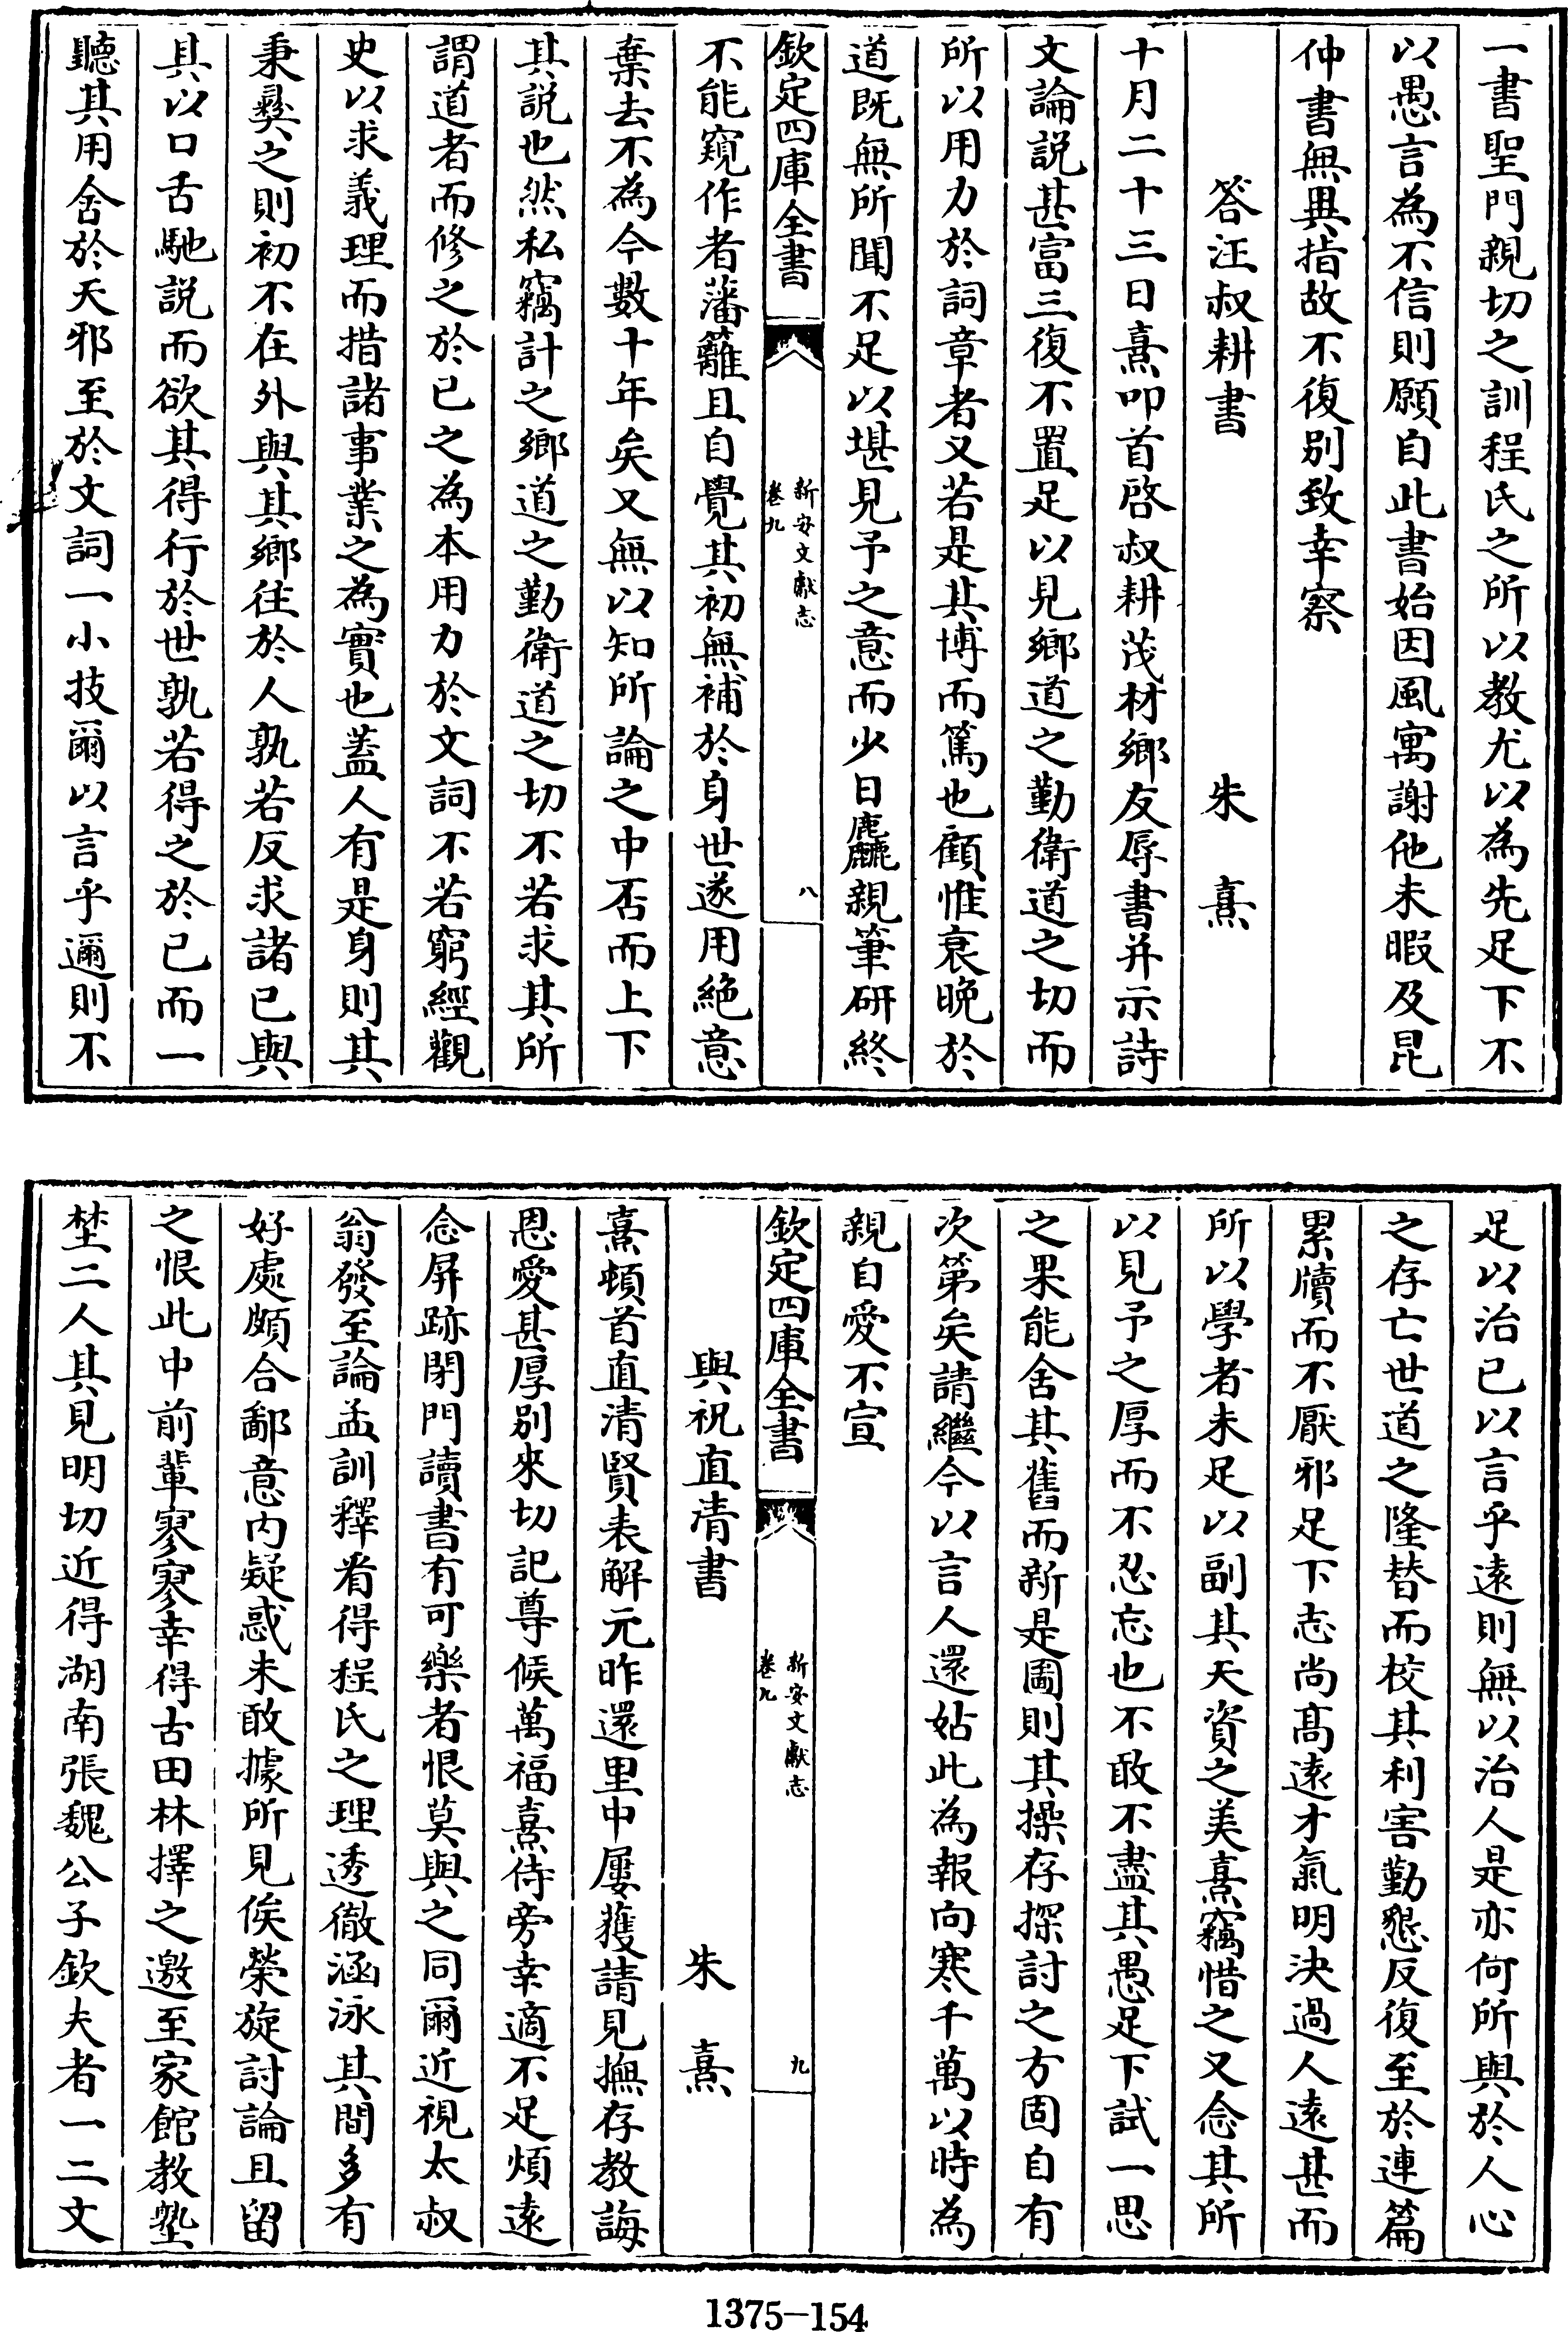 一書聖門親切之訓程氏之所以教尤以為先足下不
以愚言為不信則願自此書始因風寓謝他未暇及昆
仲書無異指故不復別致幸察
答汪叔耕書　朱熹
十月二十三日熹叩首啓叔耕茂材鄉友辱書并示詩
文論説甚富三復不置足以見鄉道之勤衛道之切而
所以用力於詞章者又若是其博而篤也顧惟衰晚於
道既無所聞不足以堪見予之意而少日麤親筆研終
欽定四庫全書
新安文獻志
卷九
八
不能窺作者藩籬且自覺其初無補於身世遂用絶意
棄去不為今數十年矣又無以知所論之中否而上下
其説也然私竊計之鄉道之勤衛道之切不若求其所
謂道者而修之於已之為本用力於文詞不若窮經觀
史以求義理而措諸事業之為實也蓋人有是身則其
秉彝之則初不在外與其鄉往於人孰若反求諸已與
其以口舌馳説而欲其得行於世孰若得之於已而一
聽其用舍於天邪至於文詞一小技爾以言乎邇則不
足以治已以言乎遠則無以治人是亦何所與於人心
之存亡世道之隆替而校其利害勤懇反復至於連篇
累牘而不厭邪足下志尚髙遠才氣明決過人遠甚而
所以學者未足以副其天資之美熹竊惜之又念其所
以見予之厚而不忍忘也不敢不盡其愚足下試一思
之果能舍其舊而新是圖則其操存探討之方固自有
次第矣請繼今以言人還姑此為報向寒千萬以時為
親自愛不宣
欽定四庫全書
新安文獻志
卷九
九
與祝直清書　朱熹
熹頓首直清賢表解元昨還里中屢獲請見撫存教誨
恩愛甚厚别來切記尊候萬福熹侍旁幸適不足煩遠
念屏跡閉門讀書有可樂者恨莫與之同爾近視太叔
翁發至論孟訓釋㸔得程氏之理透徹涵泳其間多有
好處頗合鄙意内疑惑未敢據所見俟榮旋討論且留
之恨此中前輩寥寥幸得古田林擇之邀至家館教塾
埜二人其見明切近得湖南張魏公子欽夫者一二文
1375-154